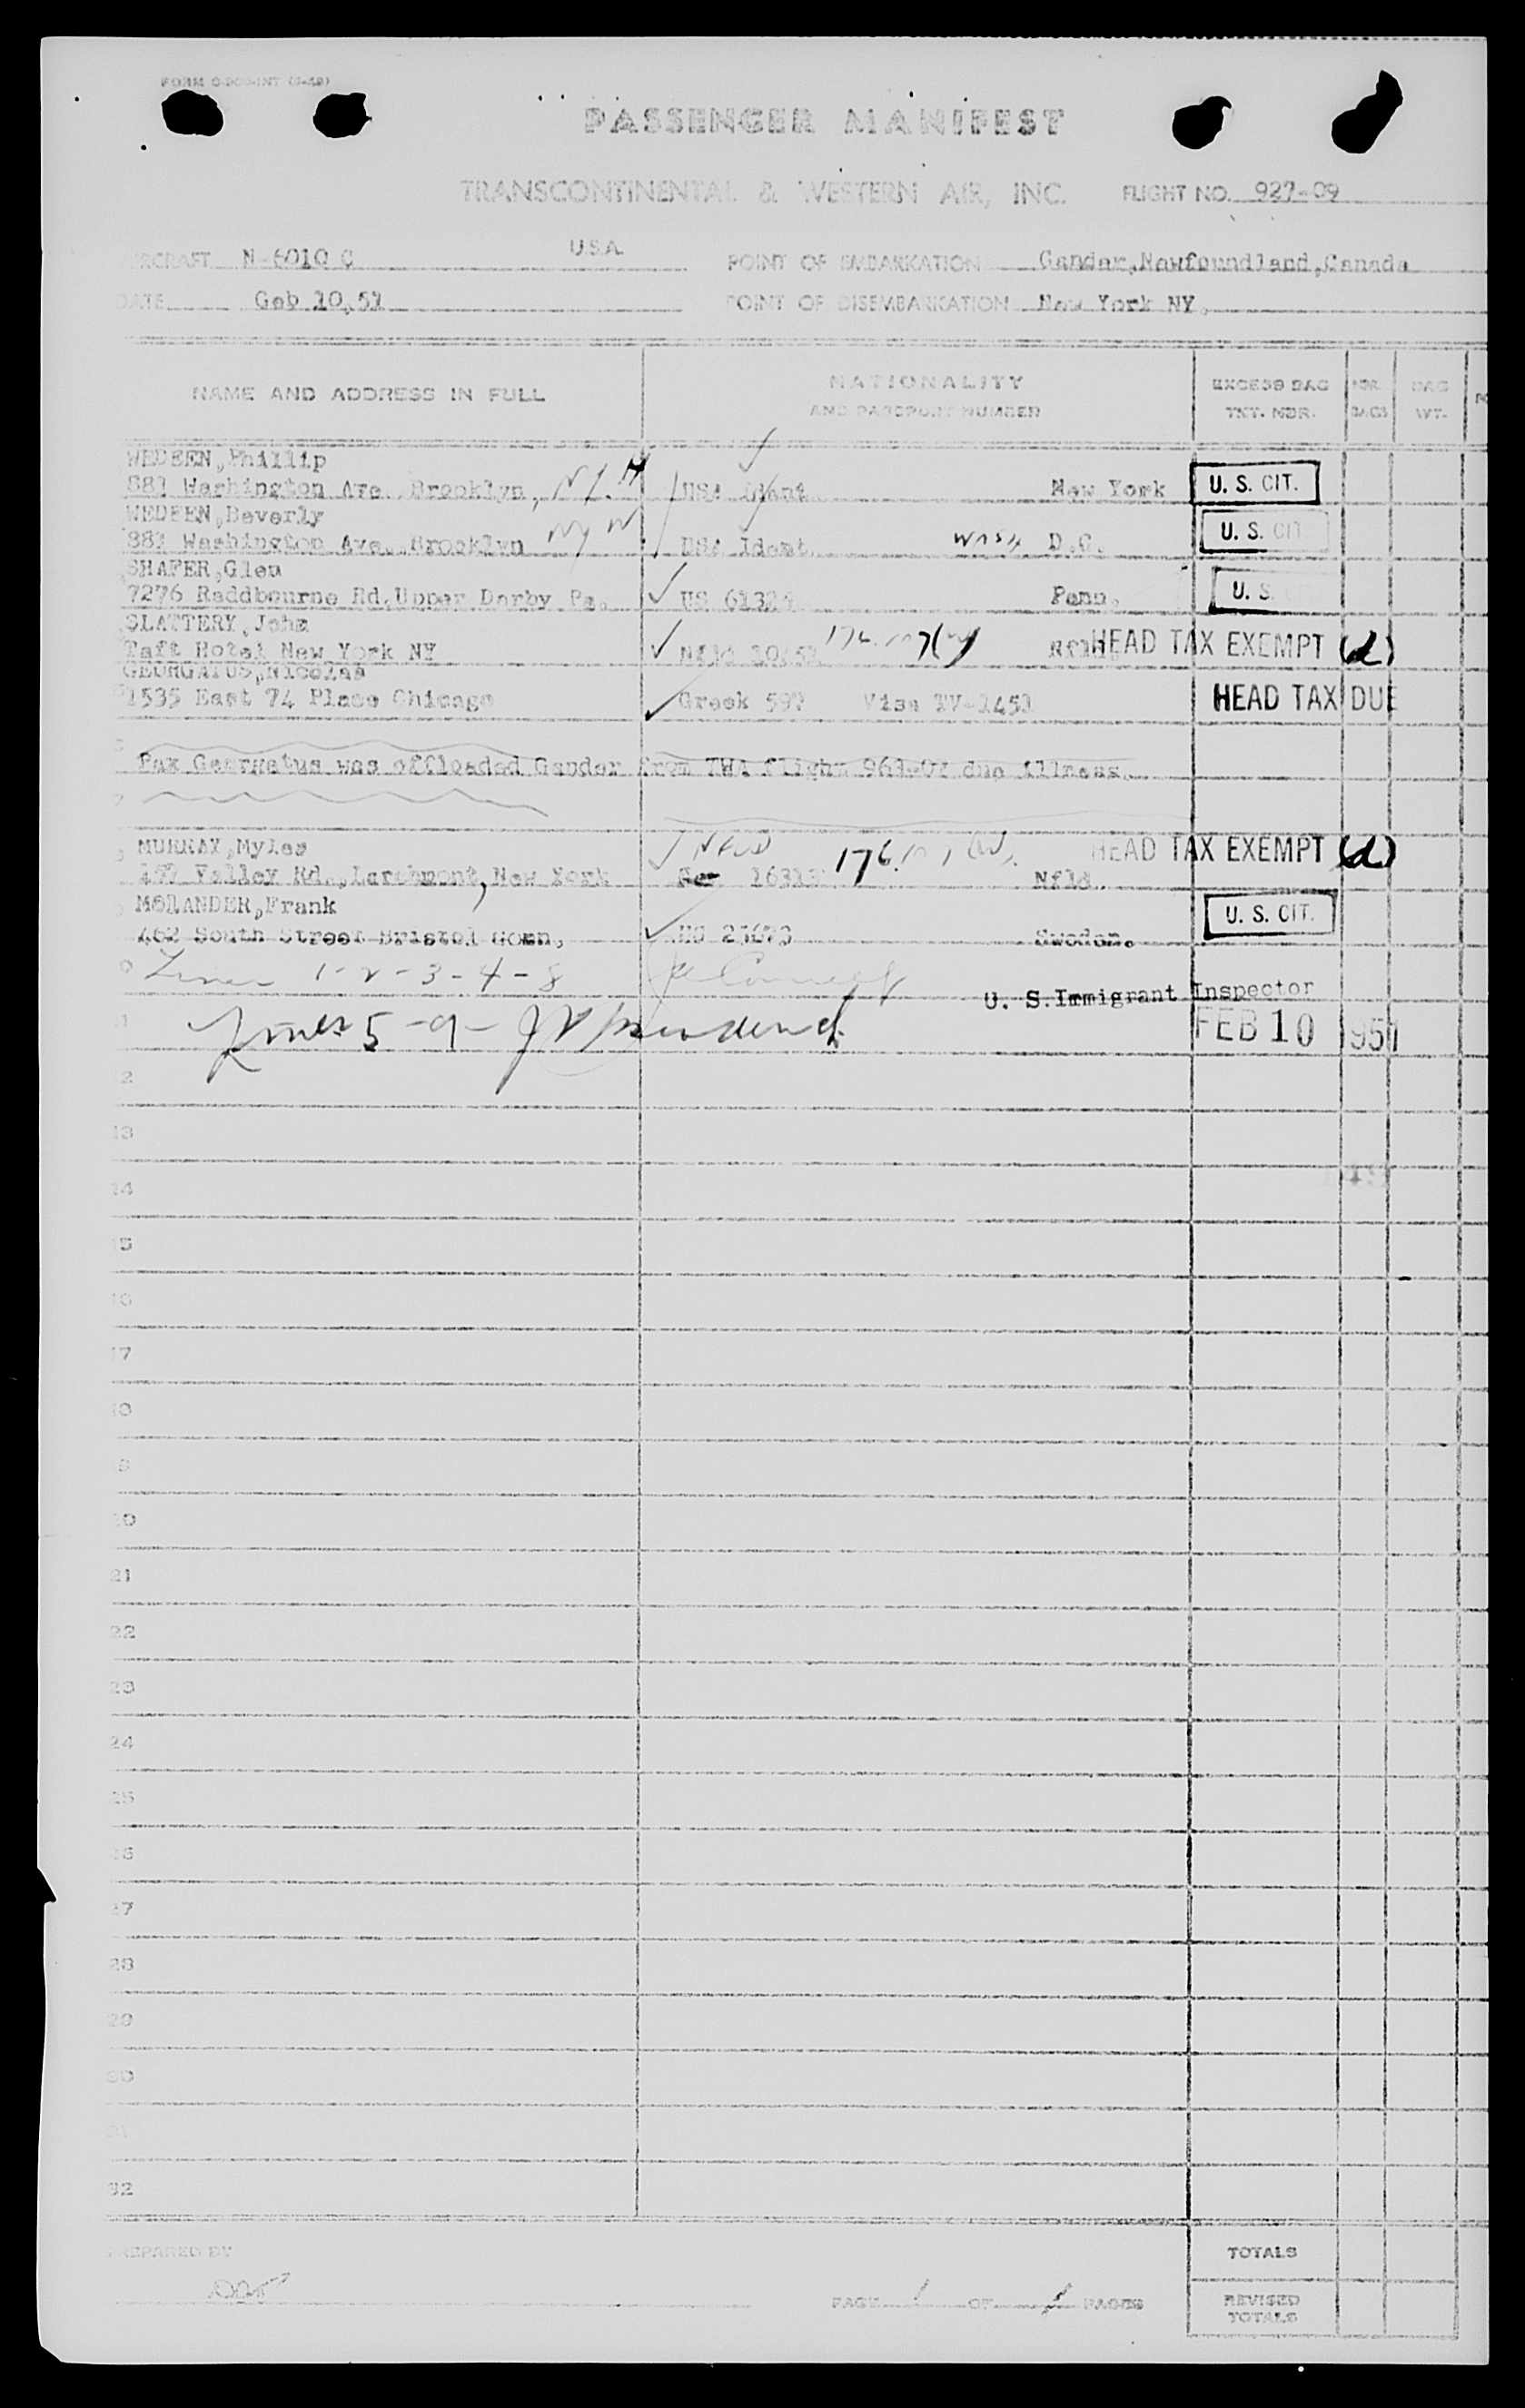 PASSENGER MANIFEST
TRANSCONTINENTAL & WESTERN AIR, INC. FLIGHT NO. 927-09
AIRCRAFT N-6010 C U.S.A. POINT OF EMBARKATION Gander,Newfoundland,Canada
DATE Geb 10,51 POINT OF DISEMBARKATION New York NY,
NAME AND ADDRESS IN FULL NATIONALITY AND PASSPORT NUMBER EXCESS BAG TKT. NBR. NBR. BAGS BAG WT.
WEDEEN,Phillip
881 Washington Ave. Brooklyn, N.Y. USA Ident New York U. S. CIT.
WEDEEN,Beverly
881 Washington Ave. Brooklyn NY USA Ident Wash D.C. U. S. CIT
SHAFER,Glen
7276 Raddbourne Rd,Upper Darby Pa. US Penn. U. S.
SLATTERY,John
Taft Hotel New York NY Nfld HEAD TAX EXEMPT (d)
GEORGATUS,Nicolas
1535 East 74 Place Chicago Greek 597 Visa IV-1451 HEAD TAX DUE
Pax Georgatus was offloaded Gander from TWA flight due illness.
MURRAY,Myles NFLD HEAD TAX EXEMPT (d)
Valley Rd.,Larchmont, New York 16313 176. Nfld.
MOLANDER,Frank U. S. CIT.
462 South Street Bristol Conn, US 23673 Sweden.
Lines 1-2-3-4-8
U. S. Immigrant Inspector
Lines 5-9-
FEB 10 1951
2
13
14
15
16
17
18
9
20
21
22
23
24
25
26
27
28
29
30
31
32
PREPARED BY TOTALS
PAGE 1 OF 1 PAGES REVISED TOTALS